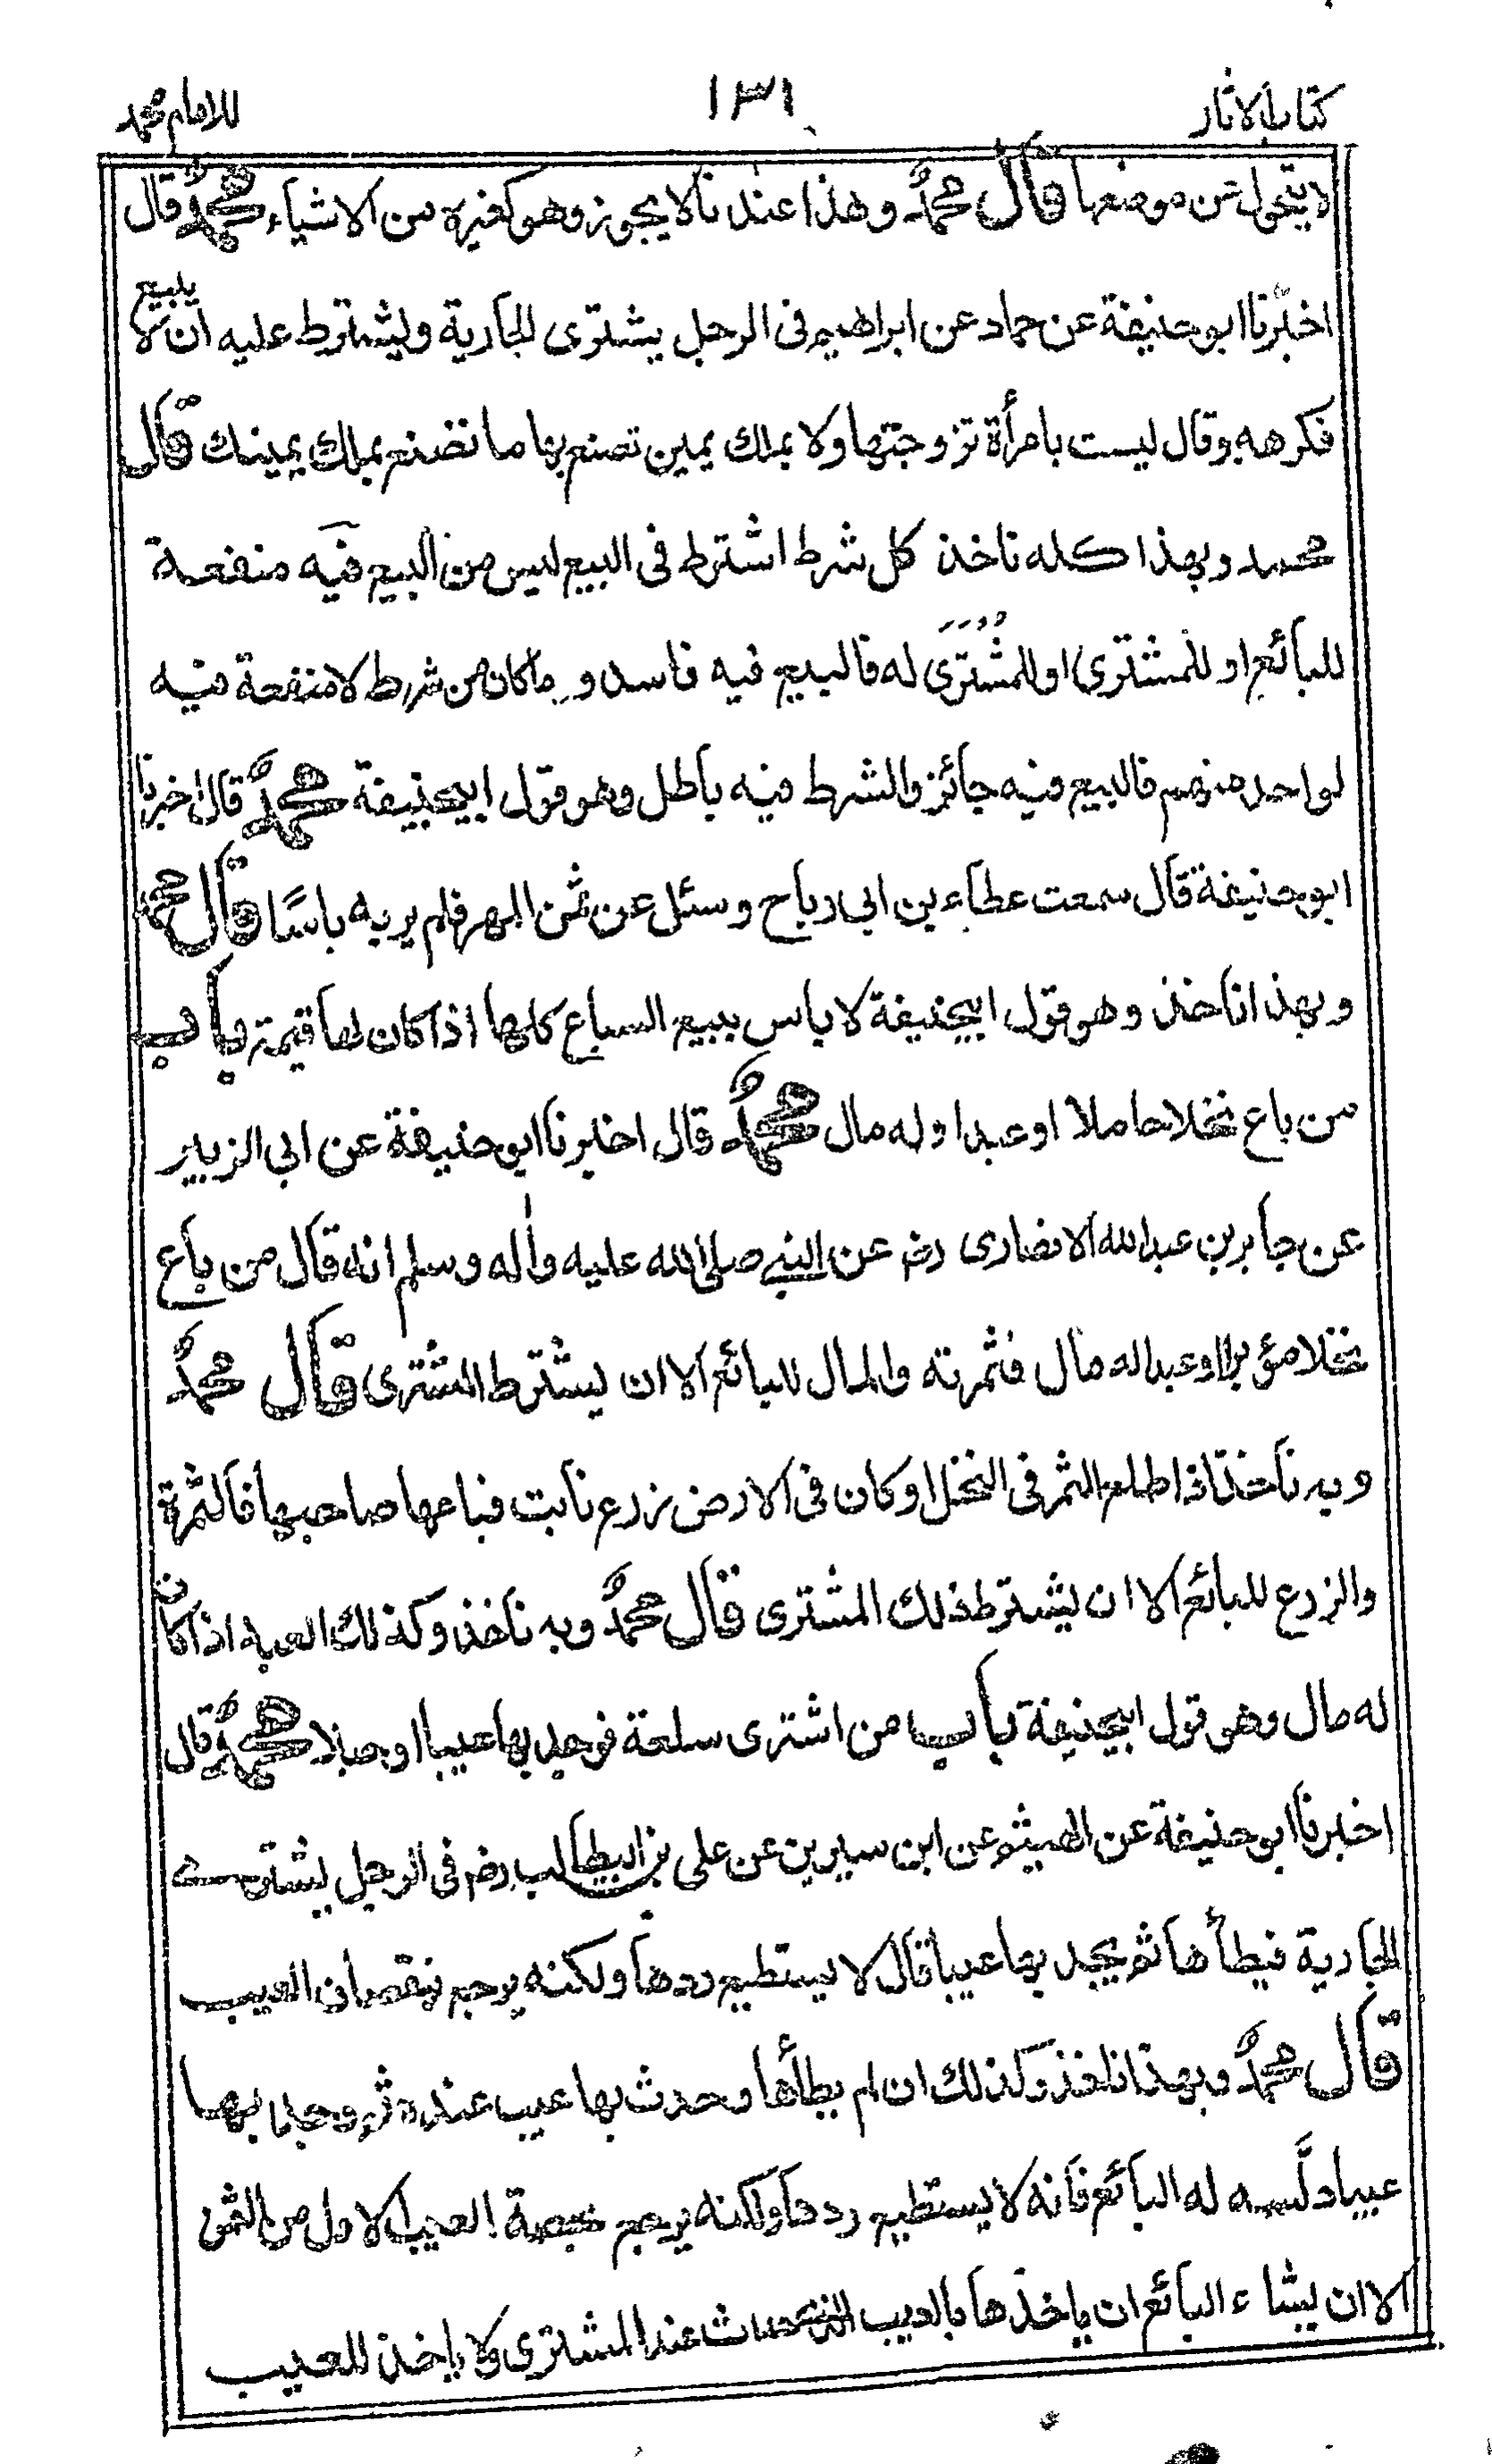 كتاب الاثار ١٣١ للامام محمد
لا يتحول عن موضعها قال محمد وهذا عندنا لا يجوز وهو كغيره من الاشياء محمد قال
اخبرنا ابو حنيفة عن حماد عن ابراهيم فى الرجل يشترى الجارية ويشترط عليه ان لا يبيع
فكرهه وقال ليست بامرأة تزوجتها ولا بملك يمين تصنع بها ما تصنع بملك يمينك قال
محمد وبهذا كله ناخذ كل شرط اشترط فى البيع ليس من البيع فيه منفعة
للبائع او للمشترى او للمشترى له فالبيع فيه فاسد و ما كان من شرط لا منفعة فيه
لواحد منهم فالبيع فيه جائز والشرط فيه باطل وهو قول ابيحنيفة محمد قال اخبرنا
ابو حنيفة قال سمعت عطاء بن ابى رباح وسئل عن ثمن الهر فلم ير به باسًا قال محمد
وبهذا ناخذ وهو قول ابيحنيفة لا باس ببيع السباع كلها اذا كان لها قيمة باب
من باع نخلا حاملا او عبدا وله مال محمد قال اخبرنا ابو حنيفة عن ابى الزبير
عن جابر بن عبد الله الانصارى رض عن النبى صلى الله عليه واٰله وسلم انه قال من باع
نخلا مؤبرا او عبدا له مال فثمرته والمال للبائع الا ان يشترط المشترى قال محمد
وبه ناخذ اذا طلع الثمر فى النخل او كان فى الارض زرع نابت فباعها صاحبها فالثمرة
والزرع للبائع الا ان يشترط ذلك المشترى قال محمد وبه ناخذ وكذلك العبد اذا كان
له مال وهو قول ابيحنيفة باب من اشترى سلعة فوجد بها عيبا او حبلا محمد قال
اخبرنا ابو حنيفة عن الهيثم عن ابن سيرين عن على بن ابيطالب رض فى الرجل يشترى
الجارية فيطأها ثم يجد بها عيبا قال لا يستطيع ردها ولكنه يرجع بنقصان العيب
قال محمد وبهذا ناخذ وكذلك ان لم يطأها وحدث بها عيب عنده ثم وجد بها
عيبا دلَّسه له البائع فانه لا يستطيع ردها ولكنه يرجع بحصة العيب الاول من الثمن
الا ان يشاء البائع ان ياخذها بالعيب الذى حدث عند المشترى ولا ياخذ للعيب